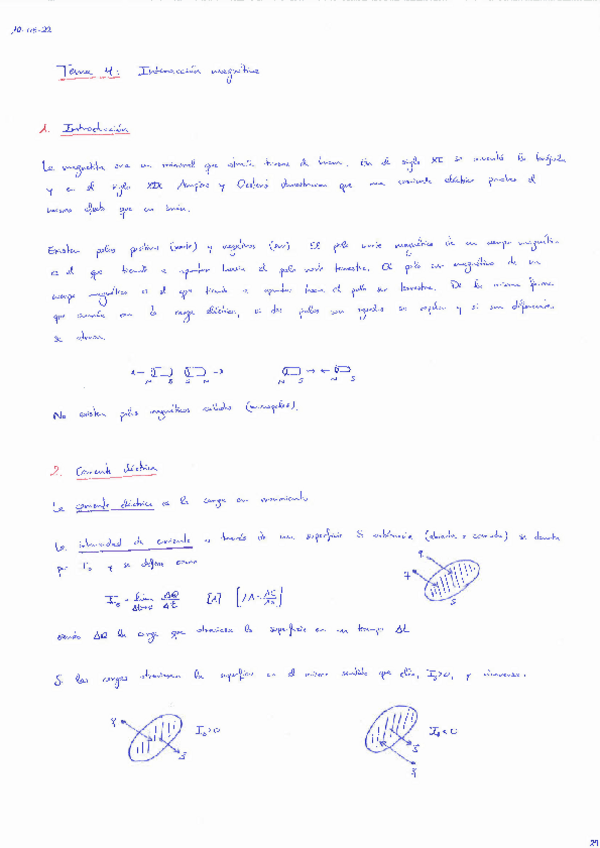 Tema 4: Interacción magnética
1. Introducción
La magnetita era un mineral que atraía trozos de hierro. En el siglo XI se inventó la brújula
y en el siglo XIX Ampère y Oersted demostraron que una corriente eléctrica produce el
mismo efecto que un imán.
Existen polos positivos (norte) y negativos (sur). El polo norte magnético de un cuerpo magnético
es el que tiende a apuntar hacia el polo norte terrestre. El polo sur magnético de un
cuerpo magnético es el que tiende a apuntar hacia el polo sur terrestre. De la misma forma
que ocurría con la carga eléctrica, si dos polos son iguales se repelen y si son diferentes
se atraen.
N S S N N S N S
No existen polos magnéticos aislados (monopolos).
2. Corriente eléctrica
La corriente eléctrica es la carga en movimiento
La intensidad de corriente a través de una superficie S arbitraria (abierta o cerrada) se denota
por Is y se define como
Is = lim Δt→0 ΔQ/Δt [A] [1A = 1C/1s]
S
siendo ΔQ la carga que atraviesa la superficie en un tiempo Δt
Si las cargas atraviesan la superficie en el mismo sentido que ella, Is>0, y viceversa.
Is>0 Is<0
29